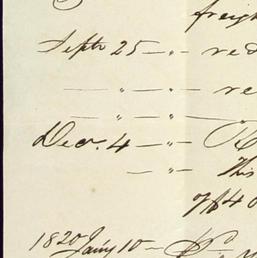 freigh
Septr 25 — " — red
— " — re
— " —
Decr. 4 — " — R
— " — This
of 40
1820 Jany 10 —